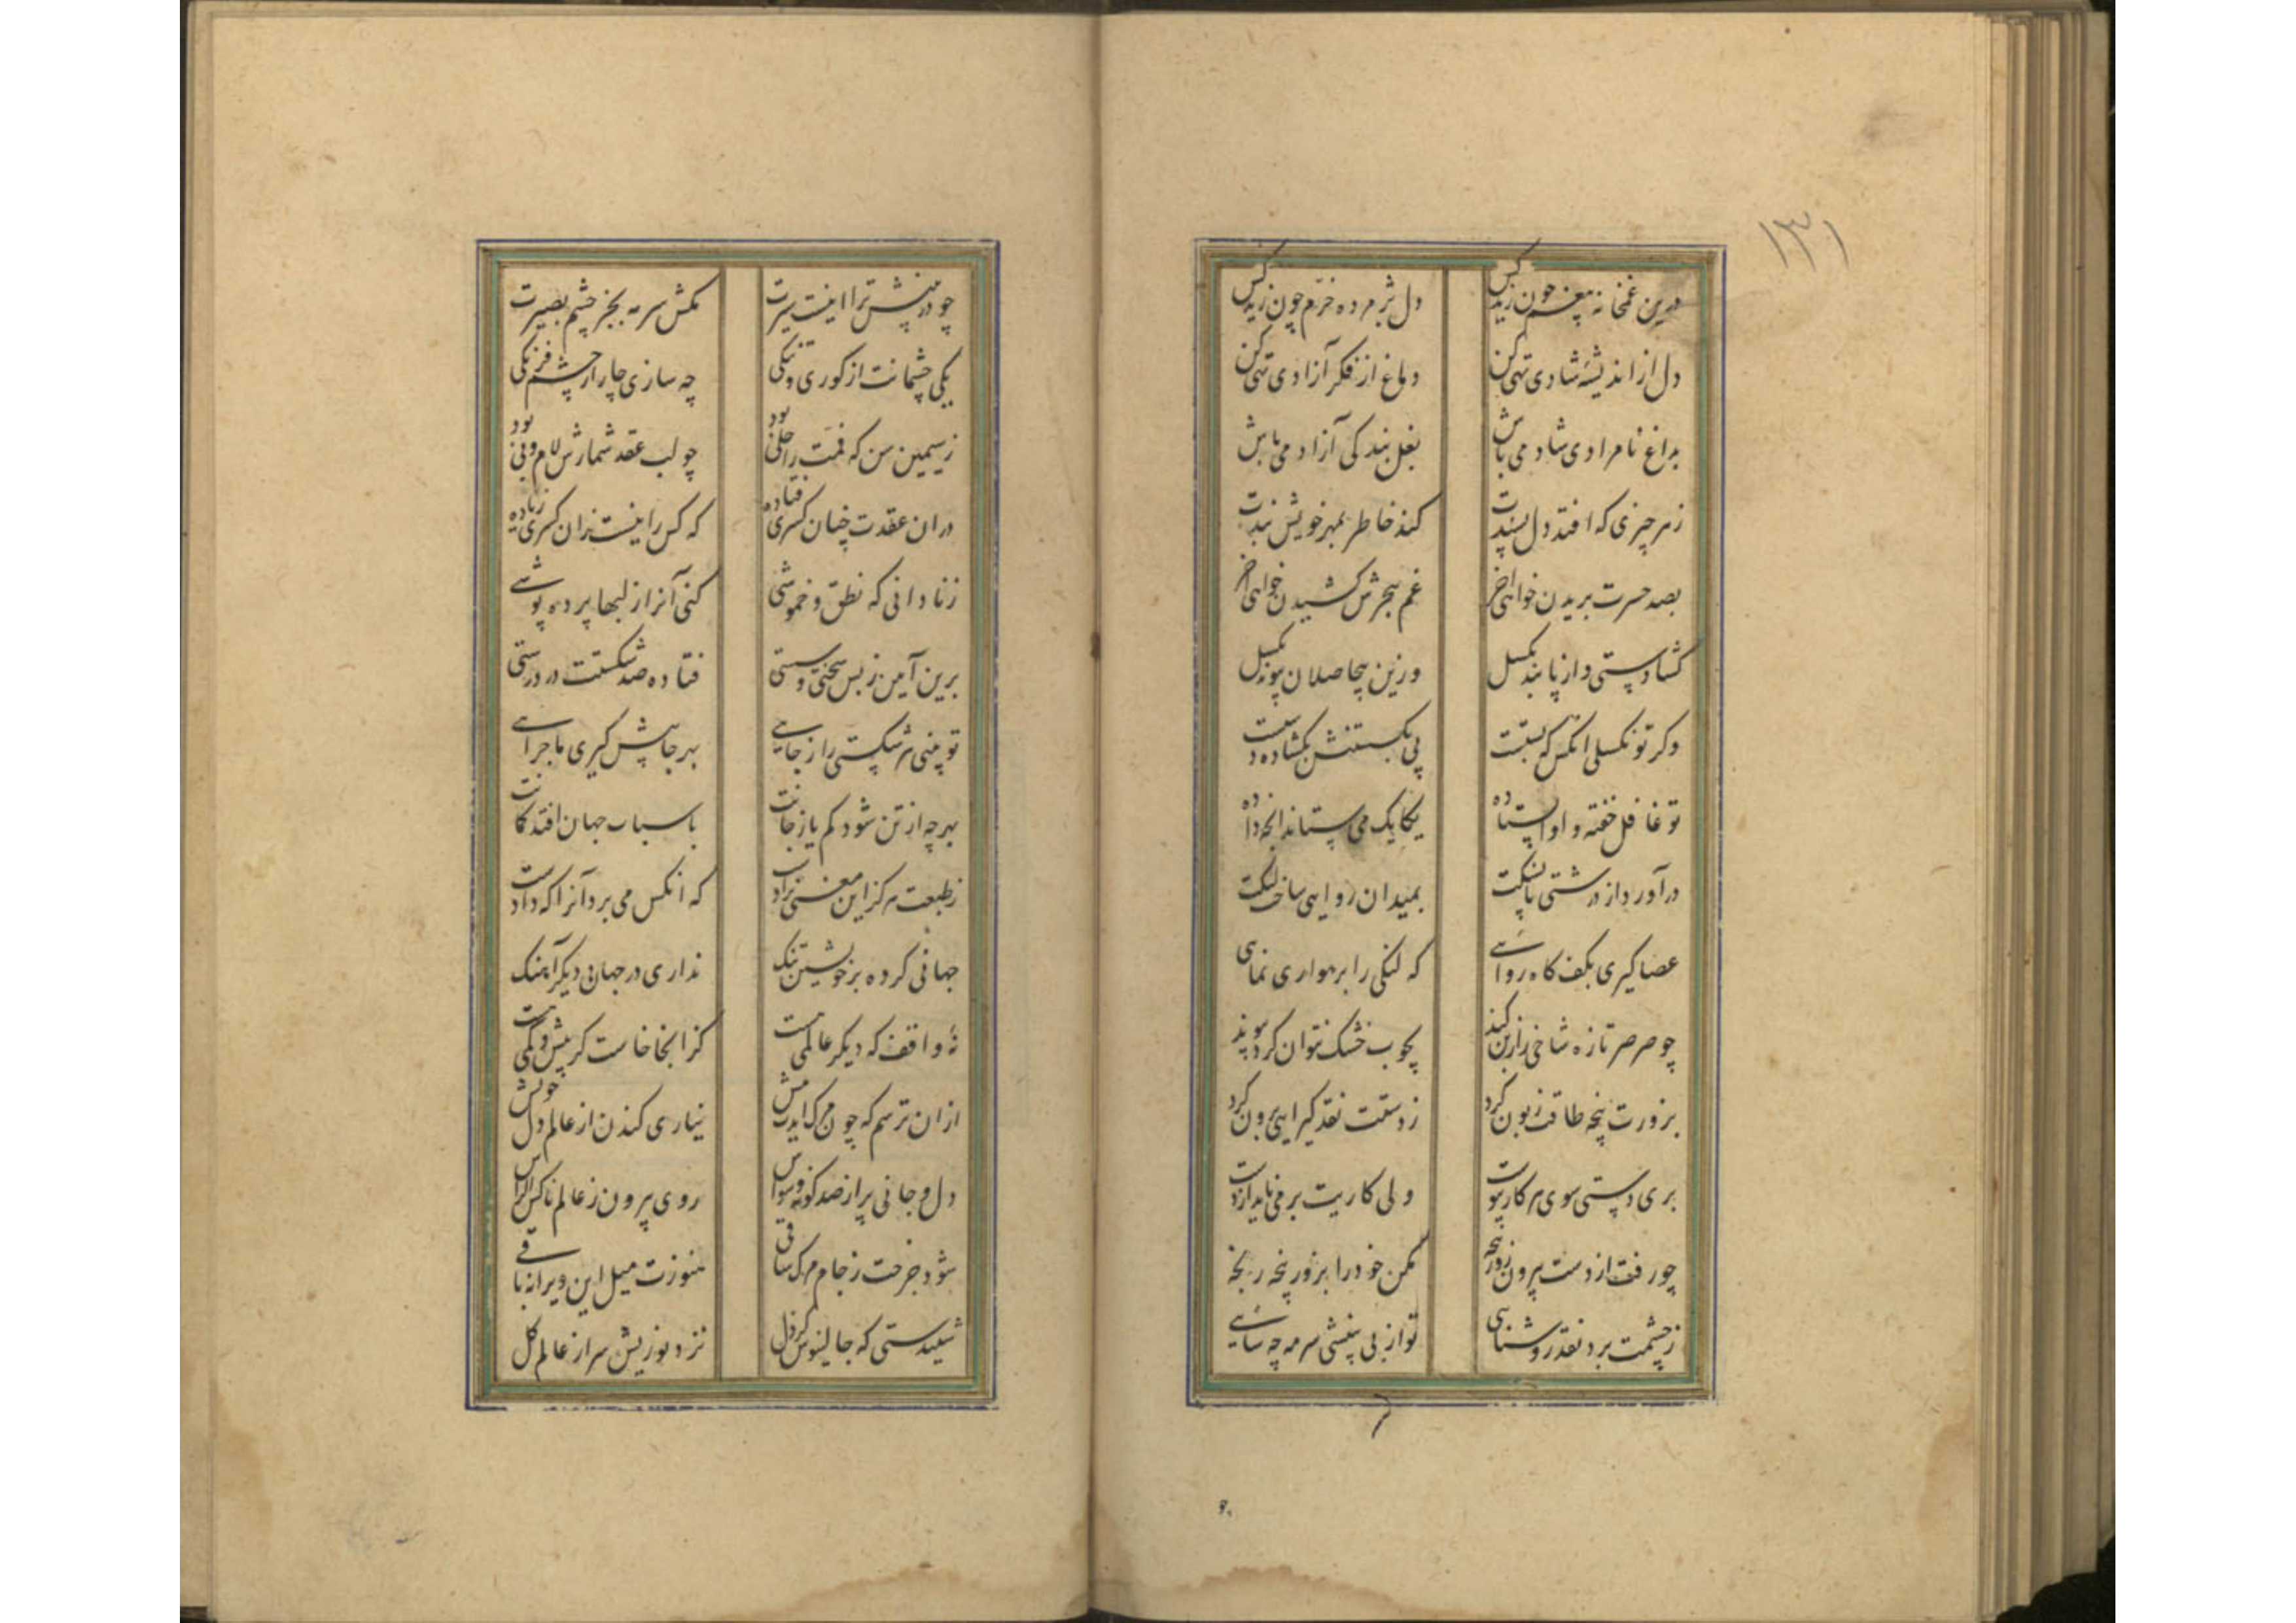 درین غمخانه بیغم چون زید کس دل پژمرده خرّم چون زید کس
دل از اندیشهٔ شادی تهی کن دماغ از فکر آزادی تهی کن
بداغ نامرادی شاد می باش بغل بندکی آزاد می باش
زهر چیزی که افتد دلپسندت کند خاطر بمهر خویش بندت
بصد حسرت بریدن خواهی آخر غم هجرش کشیدن خواهی آخر
کشا دستی و از پا بند بکسل وزین بیحاصلان پیوند بکسل
وکر تو نکسلی انکس که بستت پی بکسستنش بکشاده دستت
تو غافل خفته و او ایستاده یکایک می ستاند انچه داده
درآورد از درشتی پا بسنکت بمیدان روایی ساخت لنکت
عصا کیری بکف کاه روائے که لنکی را برهواری نمای
چو صرصر تازه شاخی را زبن کند بچوب خشک نتوان کرد پیوند
بزورت پنجه طاقت زبون کرد زدستت نقد کیرایی برون کرد
بری دستی سوی هر کار پیوست ولی کاریت بر می ناید از دست
چو رفت از دست بیرون زور پنجه مکن خود را بزور پنجه رنجه
زچشمت برد نقد روشنایی تو از بی بینشی سرمه چه سائے
چو در بینش ترا اینست سیرت مکش سرمه بجز چشم بصیرت
یکی چشمانت از کوری و تنکی چه سازی چار از چشم فرنکی
زسیمین سن که فمت را حلی بود چو لب عقد شمارش لام و بی بود
دران عقدت چنان کسری فتاده که کس را نیست زان کسری زیاده
زنادانی که نطق و خموشی کنی آنرا زلبها پرده پوشے
برین آیین زبس سختی و سستی فتاده صد شکستت در درستی
تو بینی هر شکستی را زجایے بهر جا پیش کیری ماجرائے
بهر چه از تن شود کم یا زجانت باسباب جهان افتد کمانت
زطبعت هرکز این معنی نزادست که انکس می برد آنرا که دادست
جهانی کرده بر خویشتن تنک نداری در جهانی دیکر آهنک
نهٔ واقف که دیکر عالمی هست کز انجا خاست کر بیش و کمی هست
ازان ترسم که چون مرک ایدت پیش نیاری کندن از عالم دل خویش
دل و جانی پر از صد کونه وسواس روی بیرون زعالم ناکس الراس
شود چرخت زجام مرک ساقی هنوزت میل این ویرانه باقے
شنیدستی که جالینوس کردل نزد پوزیش سر از عالم کل